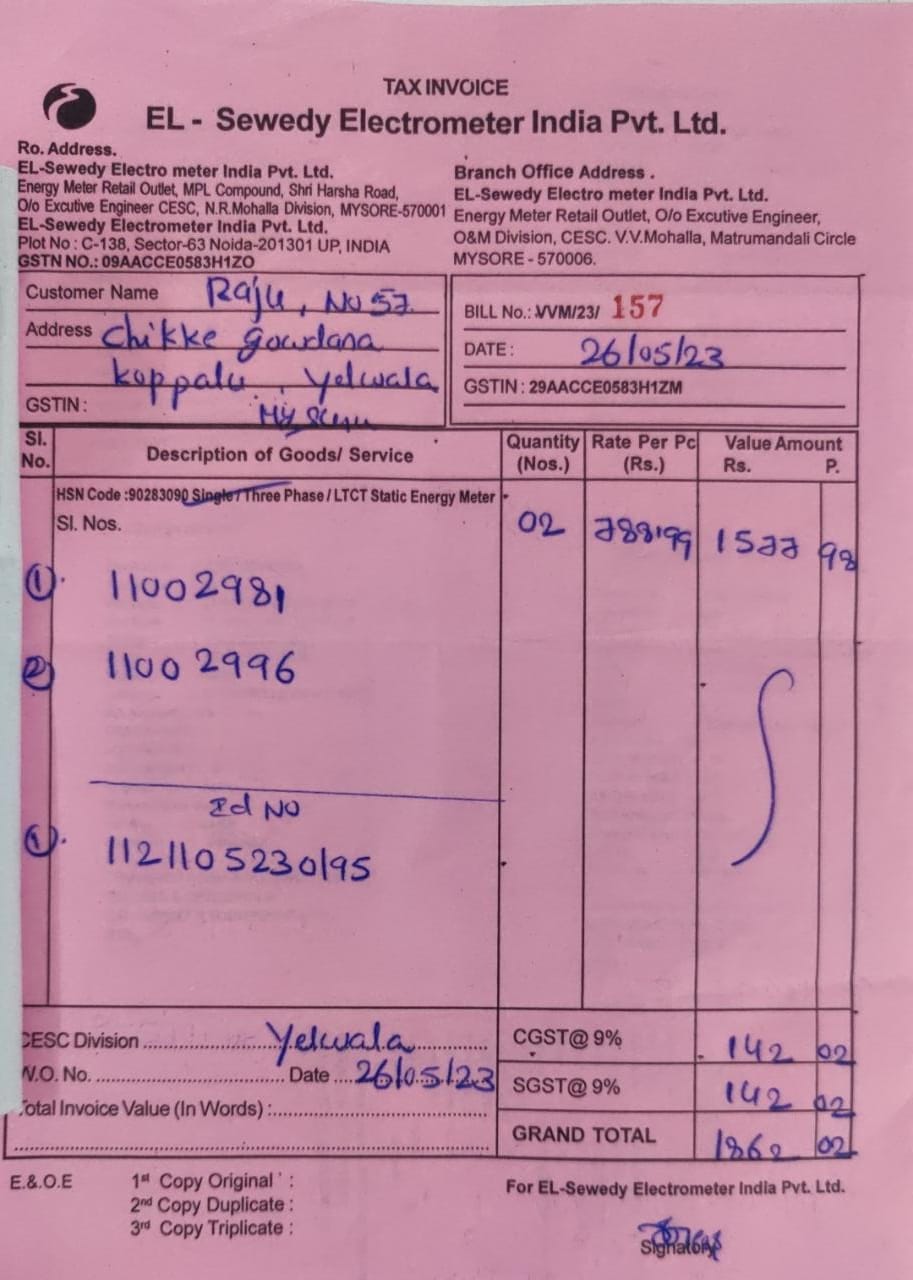 TAX INVOICE
EL - Sewedy Electrometer India Pvt. Ltd.
Ro. Address.
EL-Sewedy Electro meter India Pvt. Ltd.
Energy Meter Retail Outlet, MPL Compound, Shri Harsha Road,
O/o Excutive Engineer CESC, N.R.Mohalla Division, MYSORE-570001
EL-Sewedy Electrometer India Pvt. Ltd.
Plot No : C-138, Sector-63 Noida-201301 UP, INDIA
GSTN NO.: 09AACCE0583H1ZO
Branch Office Address .
EL-Sewedy Electro meter India Pvt. Ltd.
Energy Meter Retail Outlet, O/o Excutive Engineer,
O&M Division, CESC. V.V.Mohalla, Matrumandali Circle
MYSORE - 570006.
Customer Name Raju, No 57
Address Chikke gowdana
koppalu, Yelwala
GSTIN :
BILL No.: VVM/23/ 157
DATE : 26/05/23
GSTIN : 29AACCE0583H1ZM
Sl. No. Description of Goods/ Service Quantity (Nos.) Rate Per Pc (Rs.) Value Amount Rs. P.
HSN Code :90283090 Single / Three Phase / LTCT Static Energy Meter
Sl. Nos. 02 788.99 1577 98
1. 11002981
2 11002996
Id No
1. 1121105230195
CESC Division Yelwala CGST@ 9% 142 02
W.O. No. Date 26/05/23 SGST@ 9% 142 02
Total Invoice Value (In Words) :
GRAND TOTAL 1862 02
E.&.O.E 1st Copy Original :
2nd Copy Duplicate :
3rd Copy Triplicate :
For EL-Sewedy Electrometer India Pvt. Ltd.
Signatory